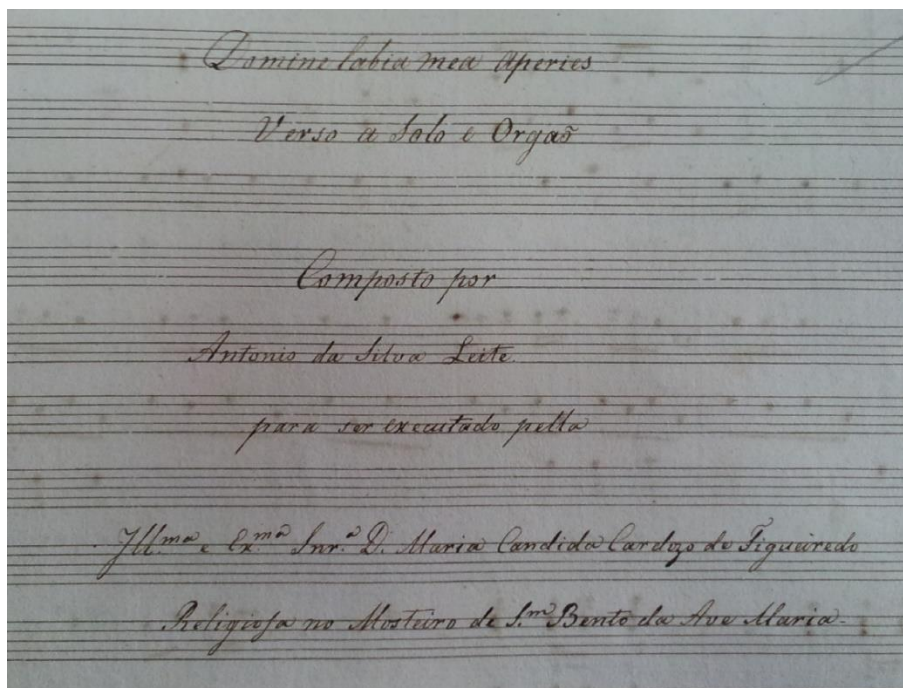 Domine labia mea Aperies
Verso a Solo e Orgaõ
Composto por
Antonio da Silva Leite.
para ser executado pella
Ill.ma e Ex.ma Snr.a D. Maria Candida Cardozo de Figueiredo
Religiosa no Mosteiro de S.m Bento da Ave Maria.